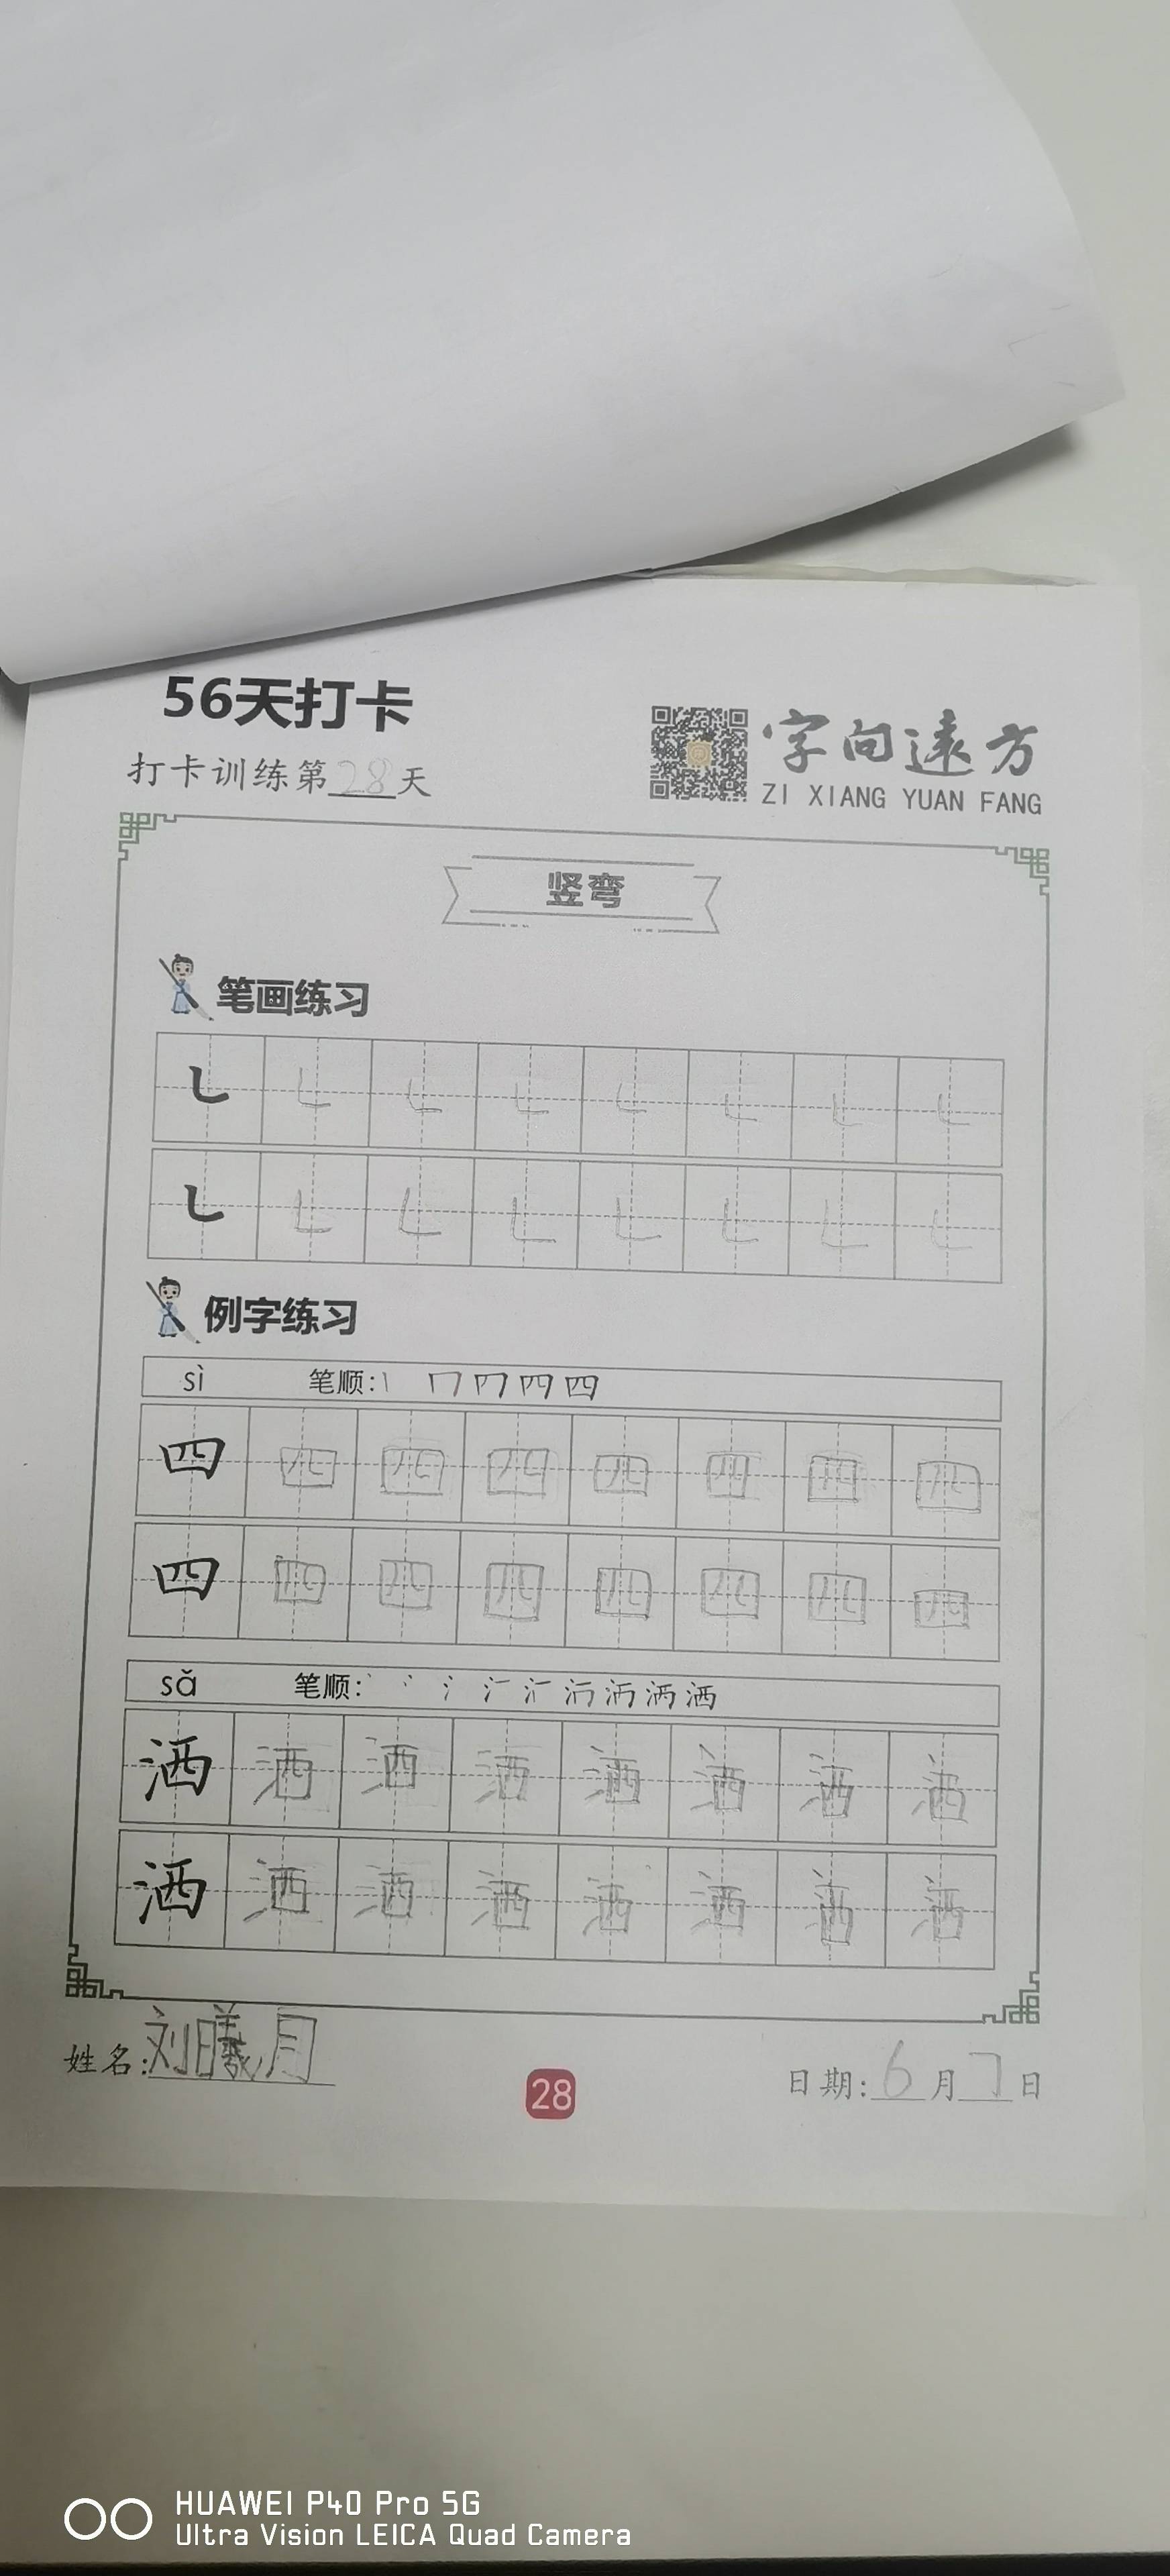 56天打卡
打卡训练第28天
字向遠方
ZI XIANG YUAN FANG
竖弯
笔画练习
㇄ ㇄ ㇄ ㇄ ㇄ ㇄ ㇄ ㇄
㇄ ㇄ ㇄ ㇄ ㇄ ㇄ ㇄ ㇄
例字练习
sì 笔顺:
四 四 四 四 四 四 四 四
四 四 四 四 四 四 四 四
sǎ 笔顺:
洒 洒 洒 洒 洒 洒 洒 洒
洒 洒 洒 洒 洒 洒 洒 洒
姓名:刘曦月
28
日期:6月7日
HUAWEI P40 Pro 5G
Ultra Vision LEICA Quad Camera